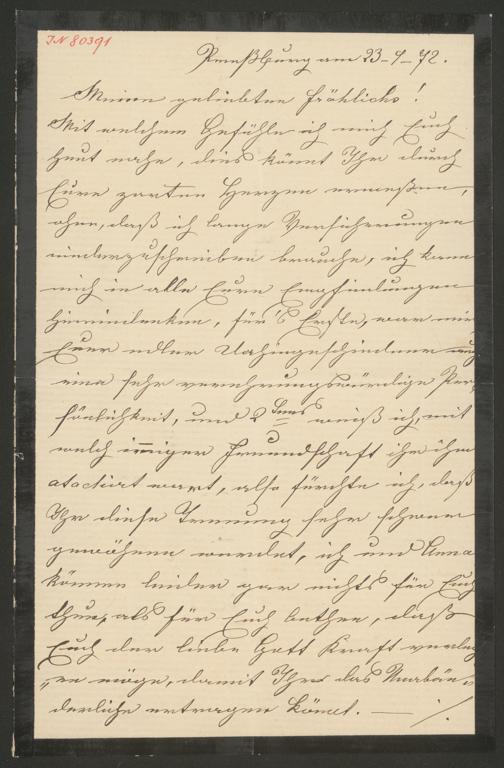 IN 80391
Preßburg am 23-4-72.
Meine geliebten Fröhlichs!
Mit welchem Gefühle ich mich Euch
heut nahe, dies könnt Ihr durch
Eure zarten Herzen ermeßen,
ohne, daß ich lange Versicherungen
niederzuschreiben brauche, ich kann
mich in alle Eure Empfindungen
hineindenken, für's Erste, war mir
Euer edler Dahingeschiedener
eine sehr verehrungswürdige Per-
sönlichkeit, und 2tens weiß ich, mit
welch inniger Freundschaft ihr ihm
atachirt wart, also fürchte ich, daß
Ihr diese Trennung sehr schwer
gewöhnen werdet, ich und Anna
können leider gar nichts für Euch
thun, als für Euch bethen, daß
Euch der liebe Gott Kraft verlei-
„en möge, damit Ihr das Unabän-
derliche ertragen könnt. — ./.